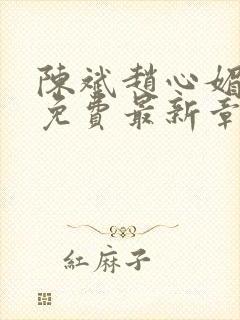 陳斌趙心媚
免費最新章
紅麻子